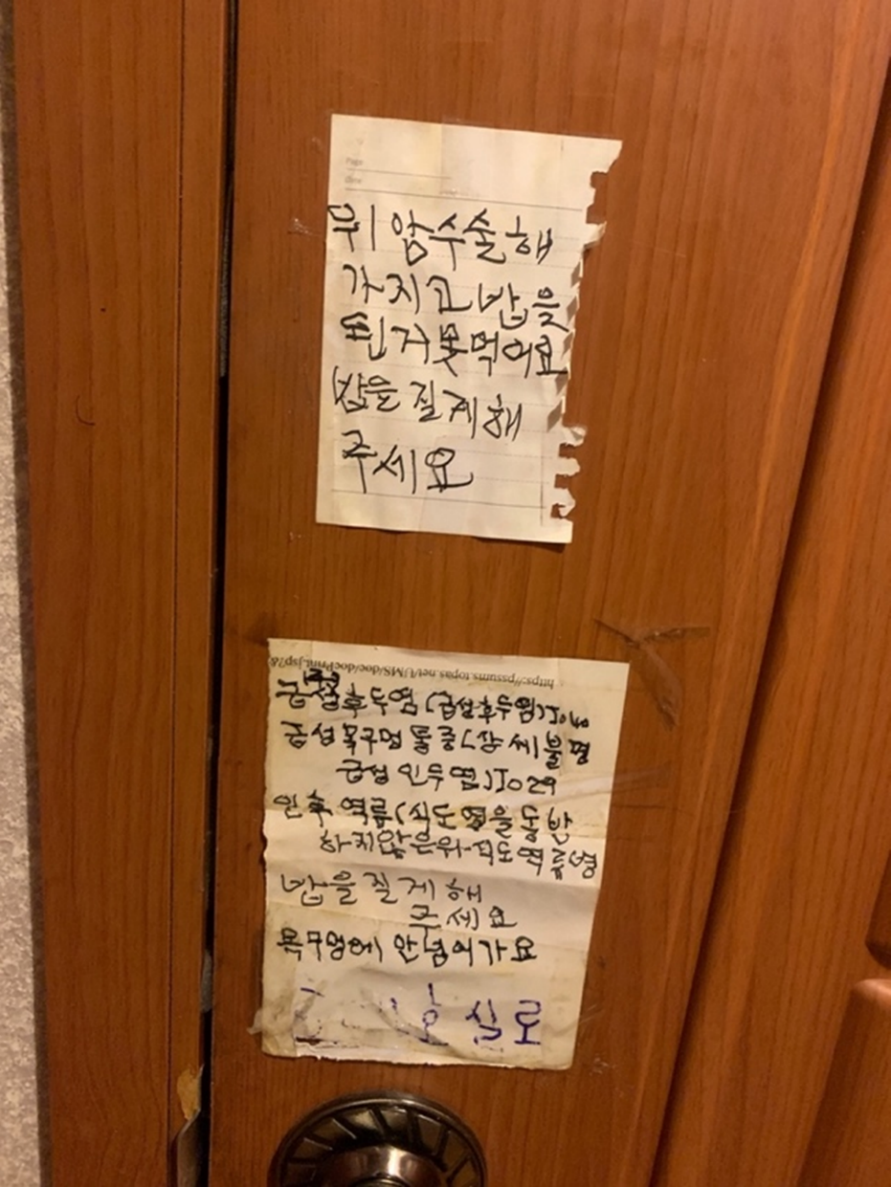 Page
Date
위 암수술해
가지고 밥을
된거못먹어요
밥을 질게해
주세요
https://pssums.topas.net/UMS/doc/docPrint.jsp?&
급성후두염(급성후두염)J040
급성 목구멍 통증(상세불명
급성 인두염)J029
인후 역류(식도염을 동반
하지않은위-식도역류병
밥을질게해
주세요
목구멍에 안넘어가요
실로